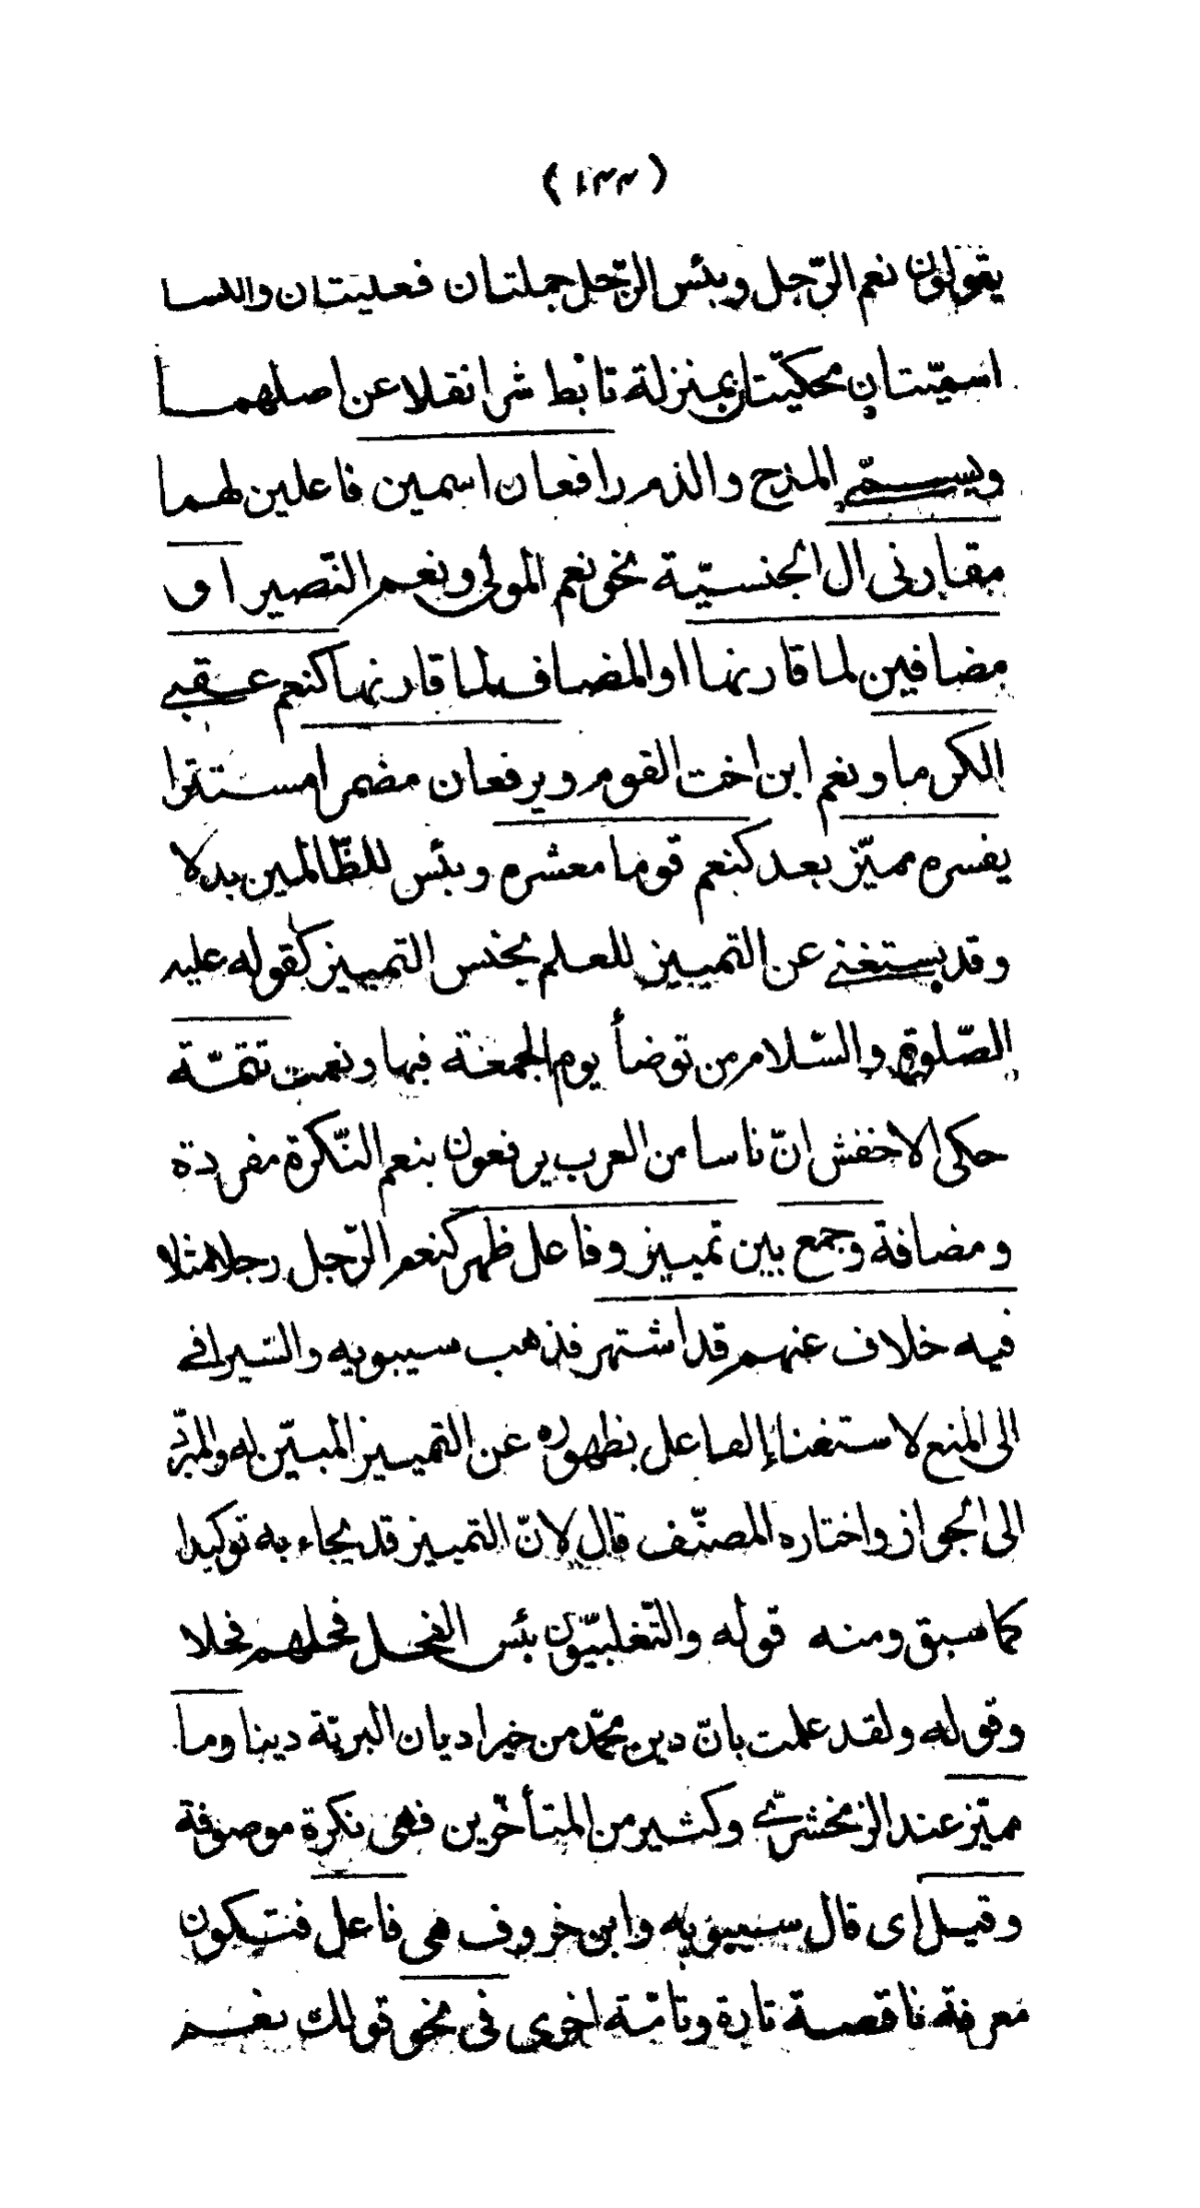 ( ١٣٣ )
يقولون نعم الرّجل وبئس الرّجل جملتان فعليتان والكسا
اسميّتان محكيّتان بمنزلة تأبط شرا نقلا عن اصلهمـــا
ويســمّى المدح والذم رافعان اسمين فاعلين لهما
مقارنى ال الجنسيّة نحو نعم المولى ونعم النّصير او
مضافين لما قارنها او المضاف لما قارنها كنعم عـقبى
الكرما ونعم ابن اخت القوم ويرفعان مضمرا مستترا
يفسره مميّز بعد كنعم قوما معشره وبئس للظّالمين بدلا
وقد يستغنى عن التمييز للعلم بجنس التمييز كقوله عليه
الصّلوة والسّلام من توضأ يوم الجمعة فبها ونعمت تتمّة
حكى الاخفش انّ ناسا من العرب يرفعون بنعم النّكرة مفردة
ومضافة وجمع بين تمييز وفاعل ظهر كنعم الرّجل رجلا مثلا
فيه خلاف عنهم قد اشتهر فذهب سيبويه والسّيرافى
الى المنع لاستغناء الفاعل بظهوره عن التمييز المبيّن له والمبرّد
الى الجواز واختاره المصنّف قال لانّ التمييز قد يجاء به توكيدا
كما سبق ومنه قوله والتّغلبيّون بئس الفحل فحلهم فحلا
وقوله ولقد علمت بانّ دين محمّد من خير اديان البريّة دينا وما
مميّز عند الزمخشرىّ وكثير من المتأخّرين فهى نكرة موصوفة
وقيل اى قال سيبويه وابن خروف هى فاعل فتكون
معرفة ناقصة تارة وتامّة اخرى فى نحو قولك نعم